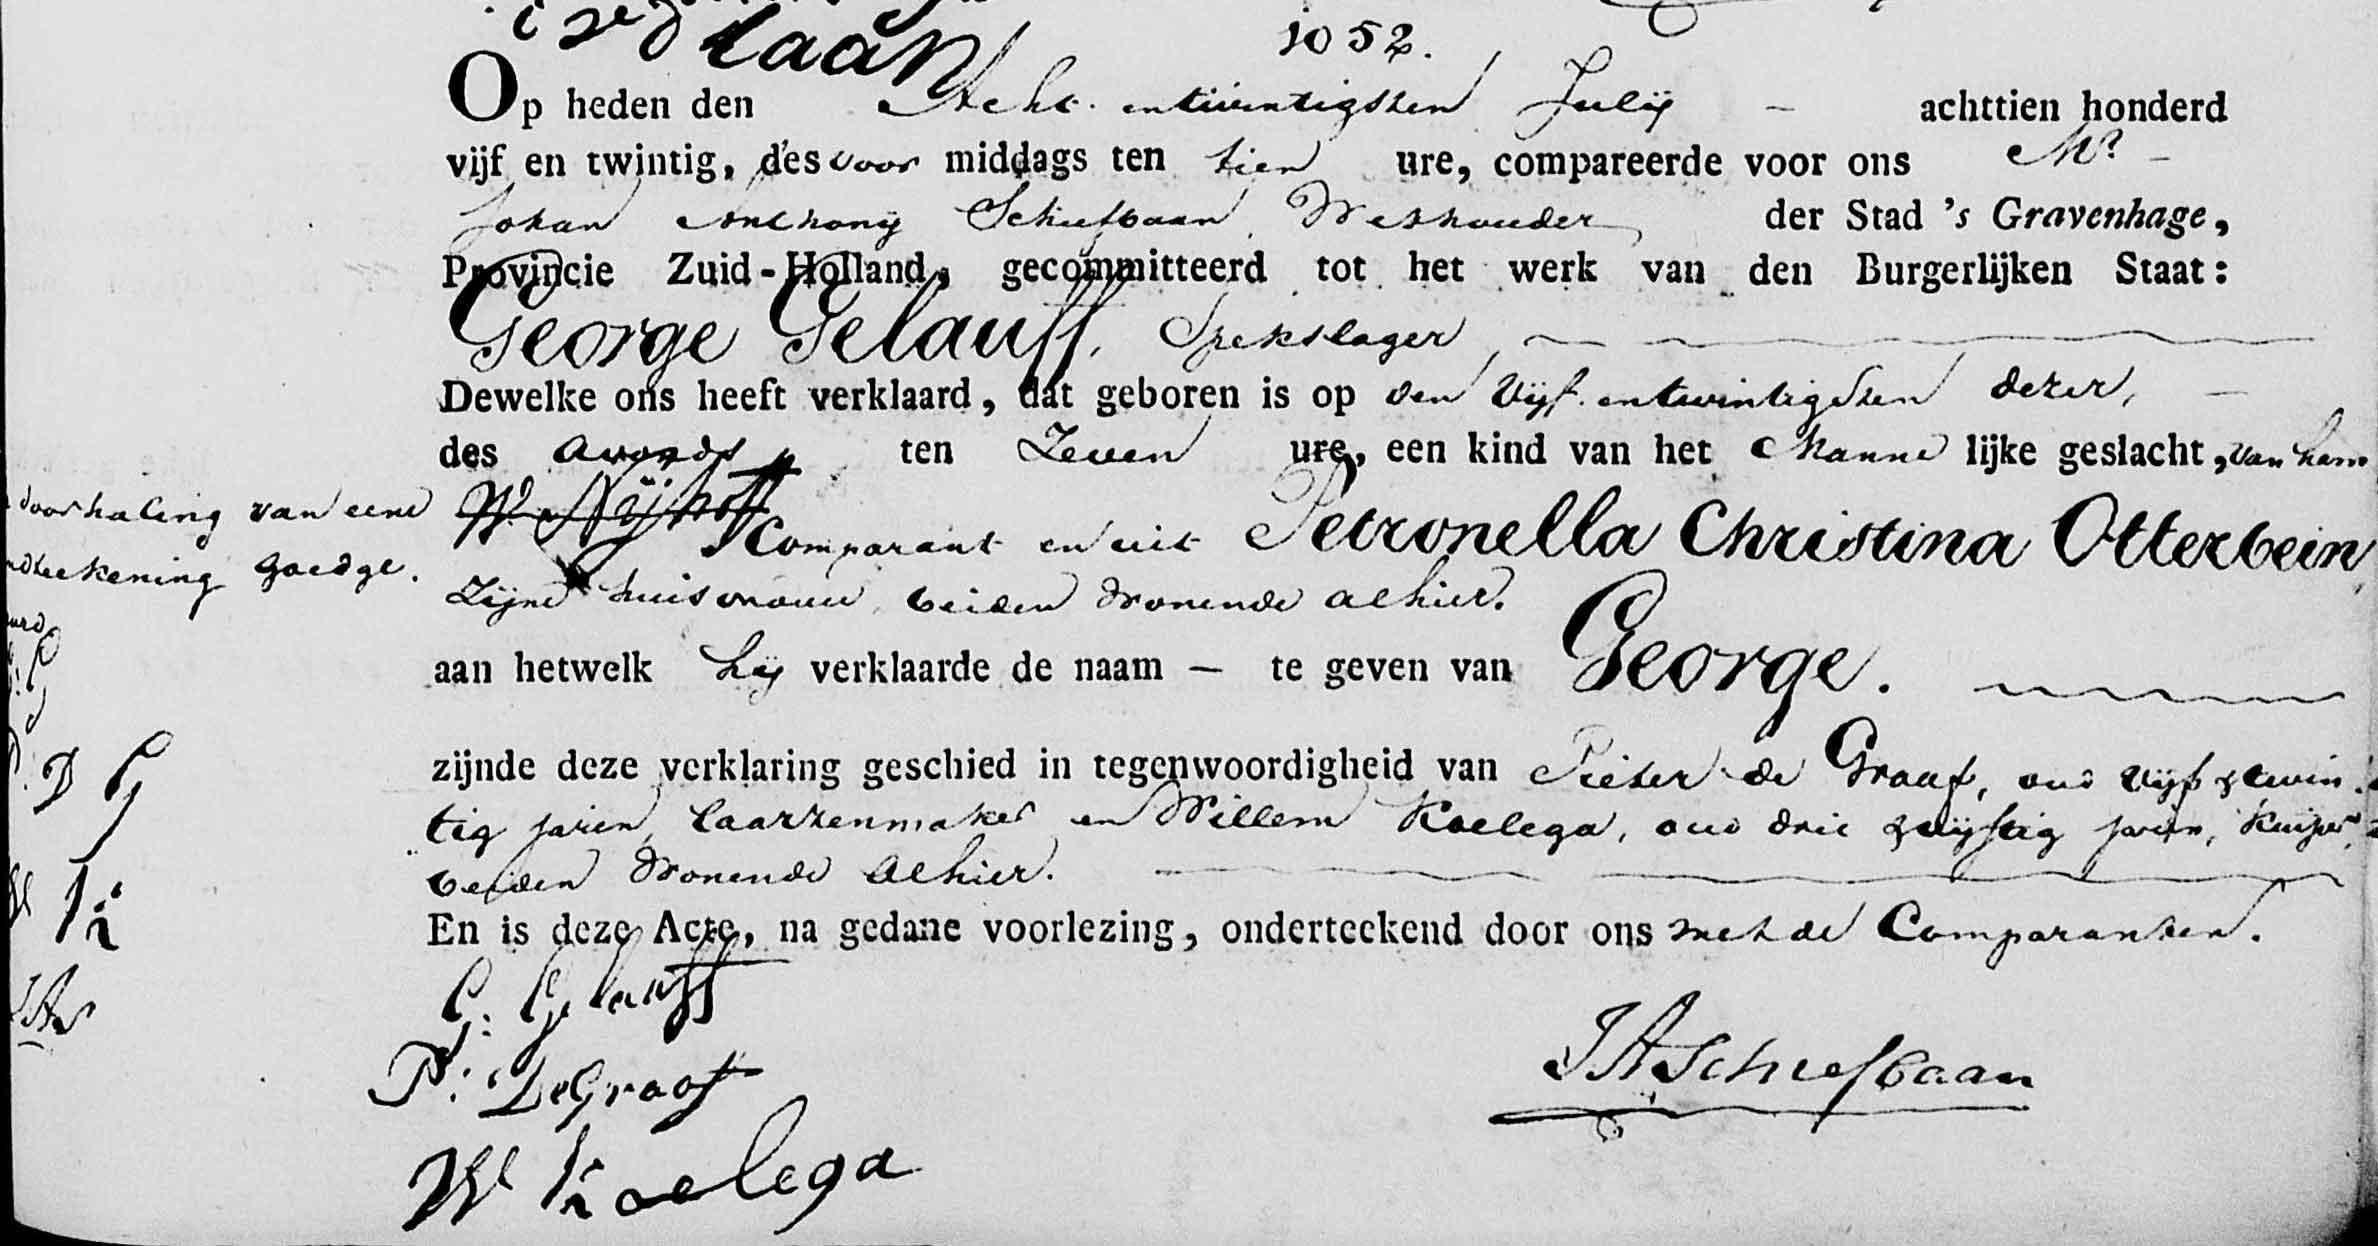 laan
1052.
Op heden den Acht entwintigsten Julij – achttien honderd
vijf en twintig, des voor middags ten tien ure, compareerde voor ons Mr.
Johan Anthonij Schiefbaan Wethouder der Stad 's Gravenhage,
Provincie Zuid-Holland, gecommitteerd tot het werk van den Burgerlijken Staat:
George Gelauff, Spekslager
Dewelke ons heeft verklaard, dat geboren is op den Vijf entwintigsten dezer, –
des avonds ten Zeven ure, een kind van het Manne lijke geslacht, van hem
W. Nijhoff Comparant en uit Petronella Christina Otterbein
Zijne huisvrouw, beiden wonende alhier.
aan hetwelk hij verklaarde de naam – te geven van George.
zijnde deze verklaring geschied in tegenwoordigheid van Pieter de Graaf, oud vijf & twin
tig jaren, laarzenmaker en Willem Koelega, oud drie & vijftig jaren, Kuiper,
beiden wonende alhier.
En is deze Acte, na gedane voorlezing, onderteekend door ons met de Comparanten.
doorhaling van eene
goedge.
P D G
W K
G: Gelauff
P: DeGraaf
W Koelega
JASchiefbaan